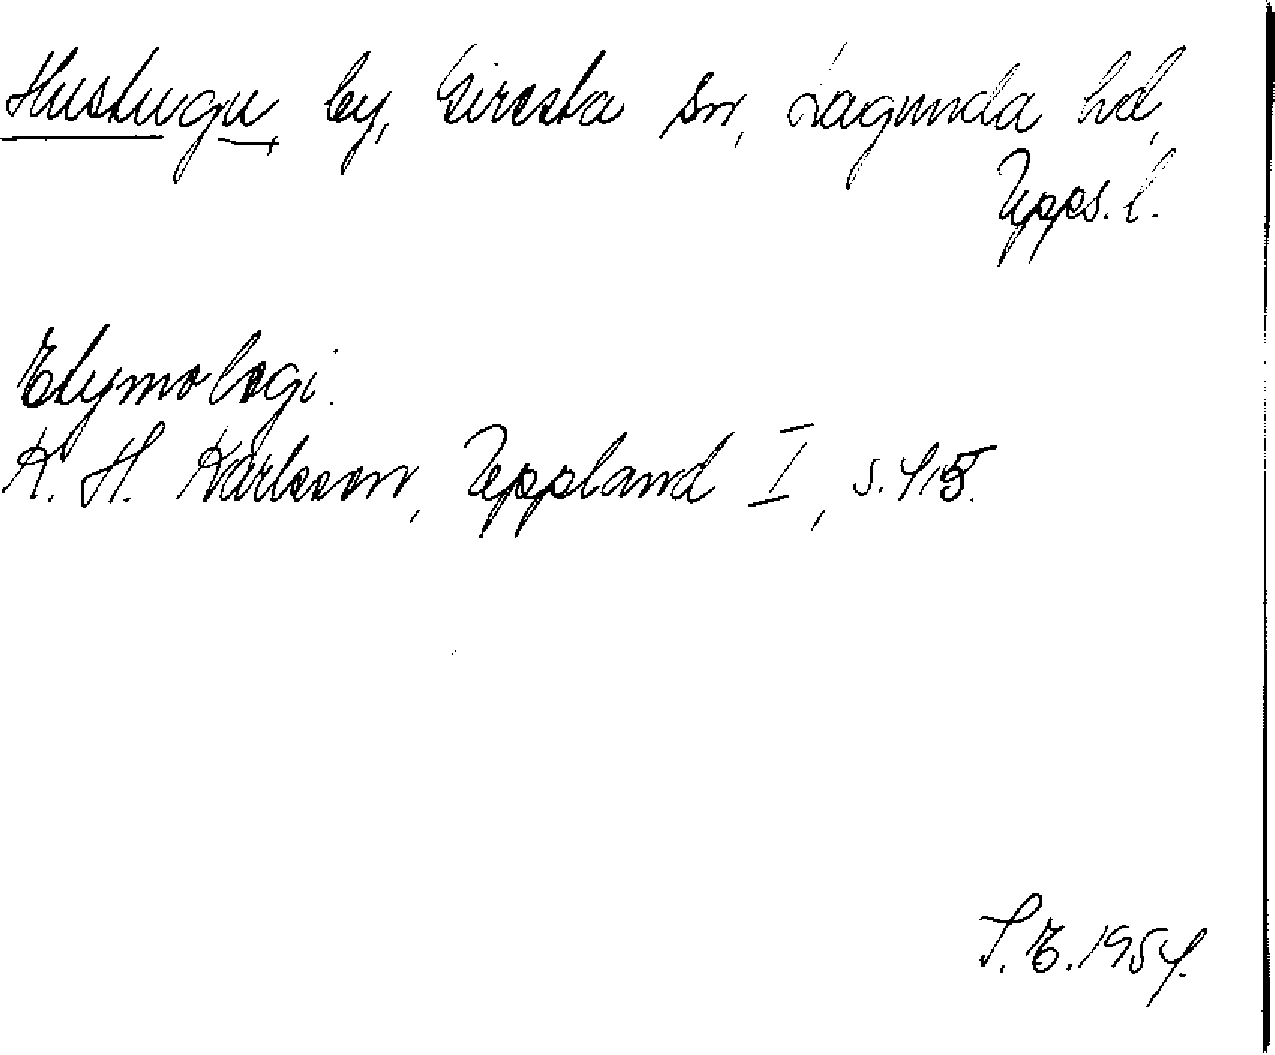 Hustugu, by, Giresta sn, Lagunda hd,
Upps. l.
Etymologi.
K. H. Karlsson, Uppland I, s. 415.
S. E. 1954.